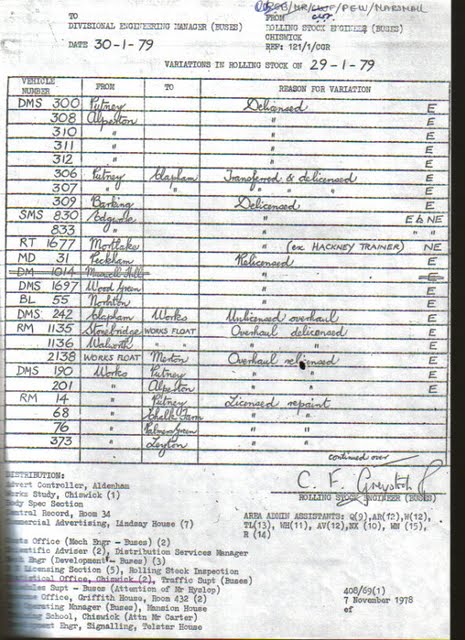 TO
DIVISIONAL ENGINEERING MANAGER (BUSES)
DATE 30-1-79
FROM
ROLLING STOCK ENGINEER (BUSES)
CHISWICK
REF: 121/1/CGR
VARIATIONS IN ROLLING STOCK ON 29-1-79
VEHICLE NUMBER FROM TO REASON FOR VARIATION
DMS 300 Putney Delicensed E
308 Alperton " E
310 " " E
311 " " E
312 " " E
306 Putney Clapham Transferred & delicensed E
307 " " " " " E
309 Barking Delicensed E
SMS 830 Edgware " E b NE
833 " " " "
RT 1677 Mortlake " (ex HACKNEY TRAINER) NE
MD 31 Peckham Relicensed E
DM 1014 Muswell Hill " E
DMS 1697 Wood Green " E
BL 55 Norbiton " E
DMS 242 Clapham Works Unlicensed overhaul E
RM 1135 Stonebridge WORKS FLOAT Overhaul delicensed E
1136 Walworth " " " E
2138 WORKS FLOAT Merton Overhaul relicensed E
DMS 190 Works Putney " E
201 " Alperton " E
RM 14 " Putney Licensed repaint
68 " Chalk Farm " "
76 " Palmers Green " "
373 " Leyton " "
continued over
ROLLING STOCK ENGINEER (BUSES)
DISTRIBUTION:
Advert Controller, Aldenham
Works Study, Chiswick (1)
Body Spec Section
Central Record, Room 34
Commercial Advertising, Lindsay House (7)
AREA ADMIN ASSISTANTS: Q(9),AR(12),W(12),
TL(13), WH(11), AV(12),NX (10), MN (15),
R (14)
Office (Mech Engr - Buses) (2)
Scientific Adviser (2), Distribution Services Manager
Mech Engr (Development - Buses) (3)
Licensing Section (5), Rolling Stock Inspection
Statistical Office, Chiswick (2), Traffic Supt (Buses)
Schedules Supt - Buses (Attention of Mr Hyslop)
Office, Griffith House, Room 432 (2)
Operating Manager (Buses), Mansion House
Training School, Chiswick (Attn Mr Carter)
Engr, Signalling, Telstar House
408/69(1)
7 November 1978